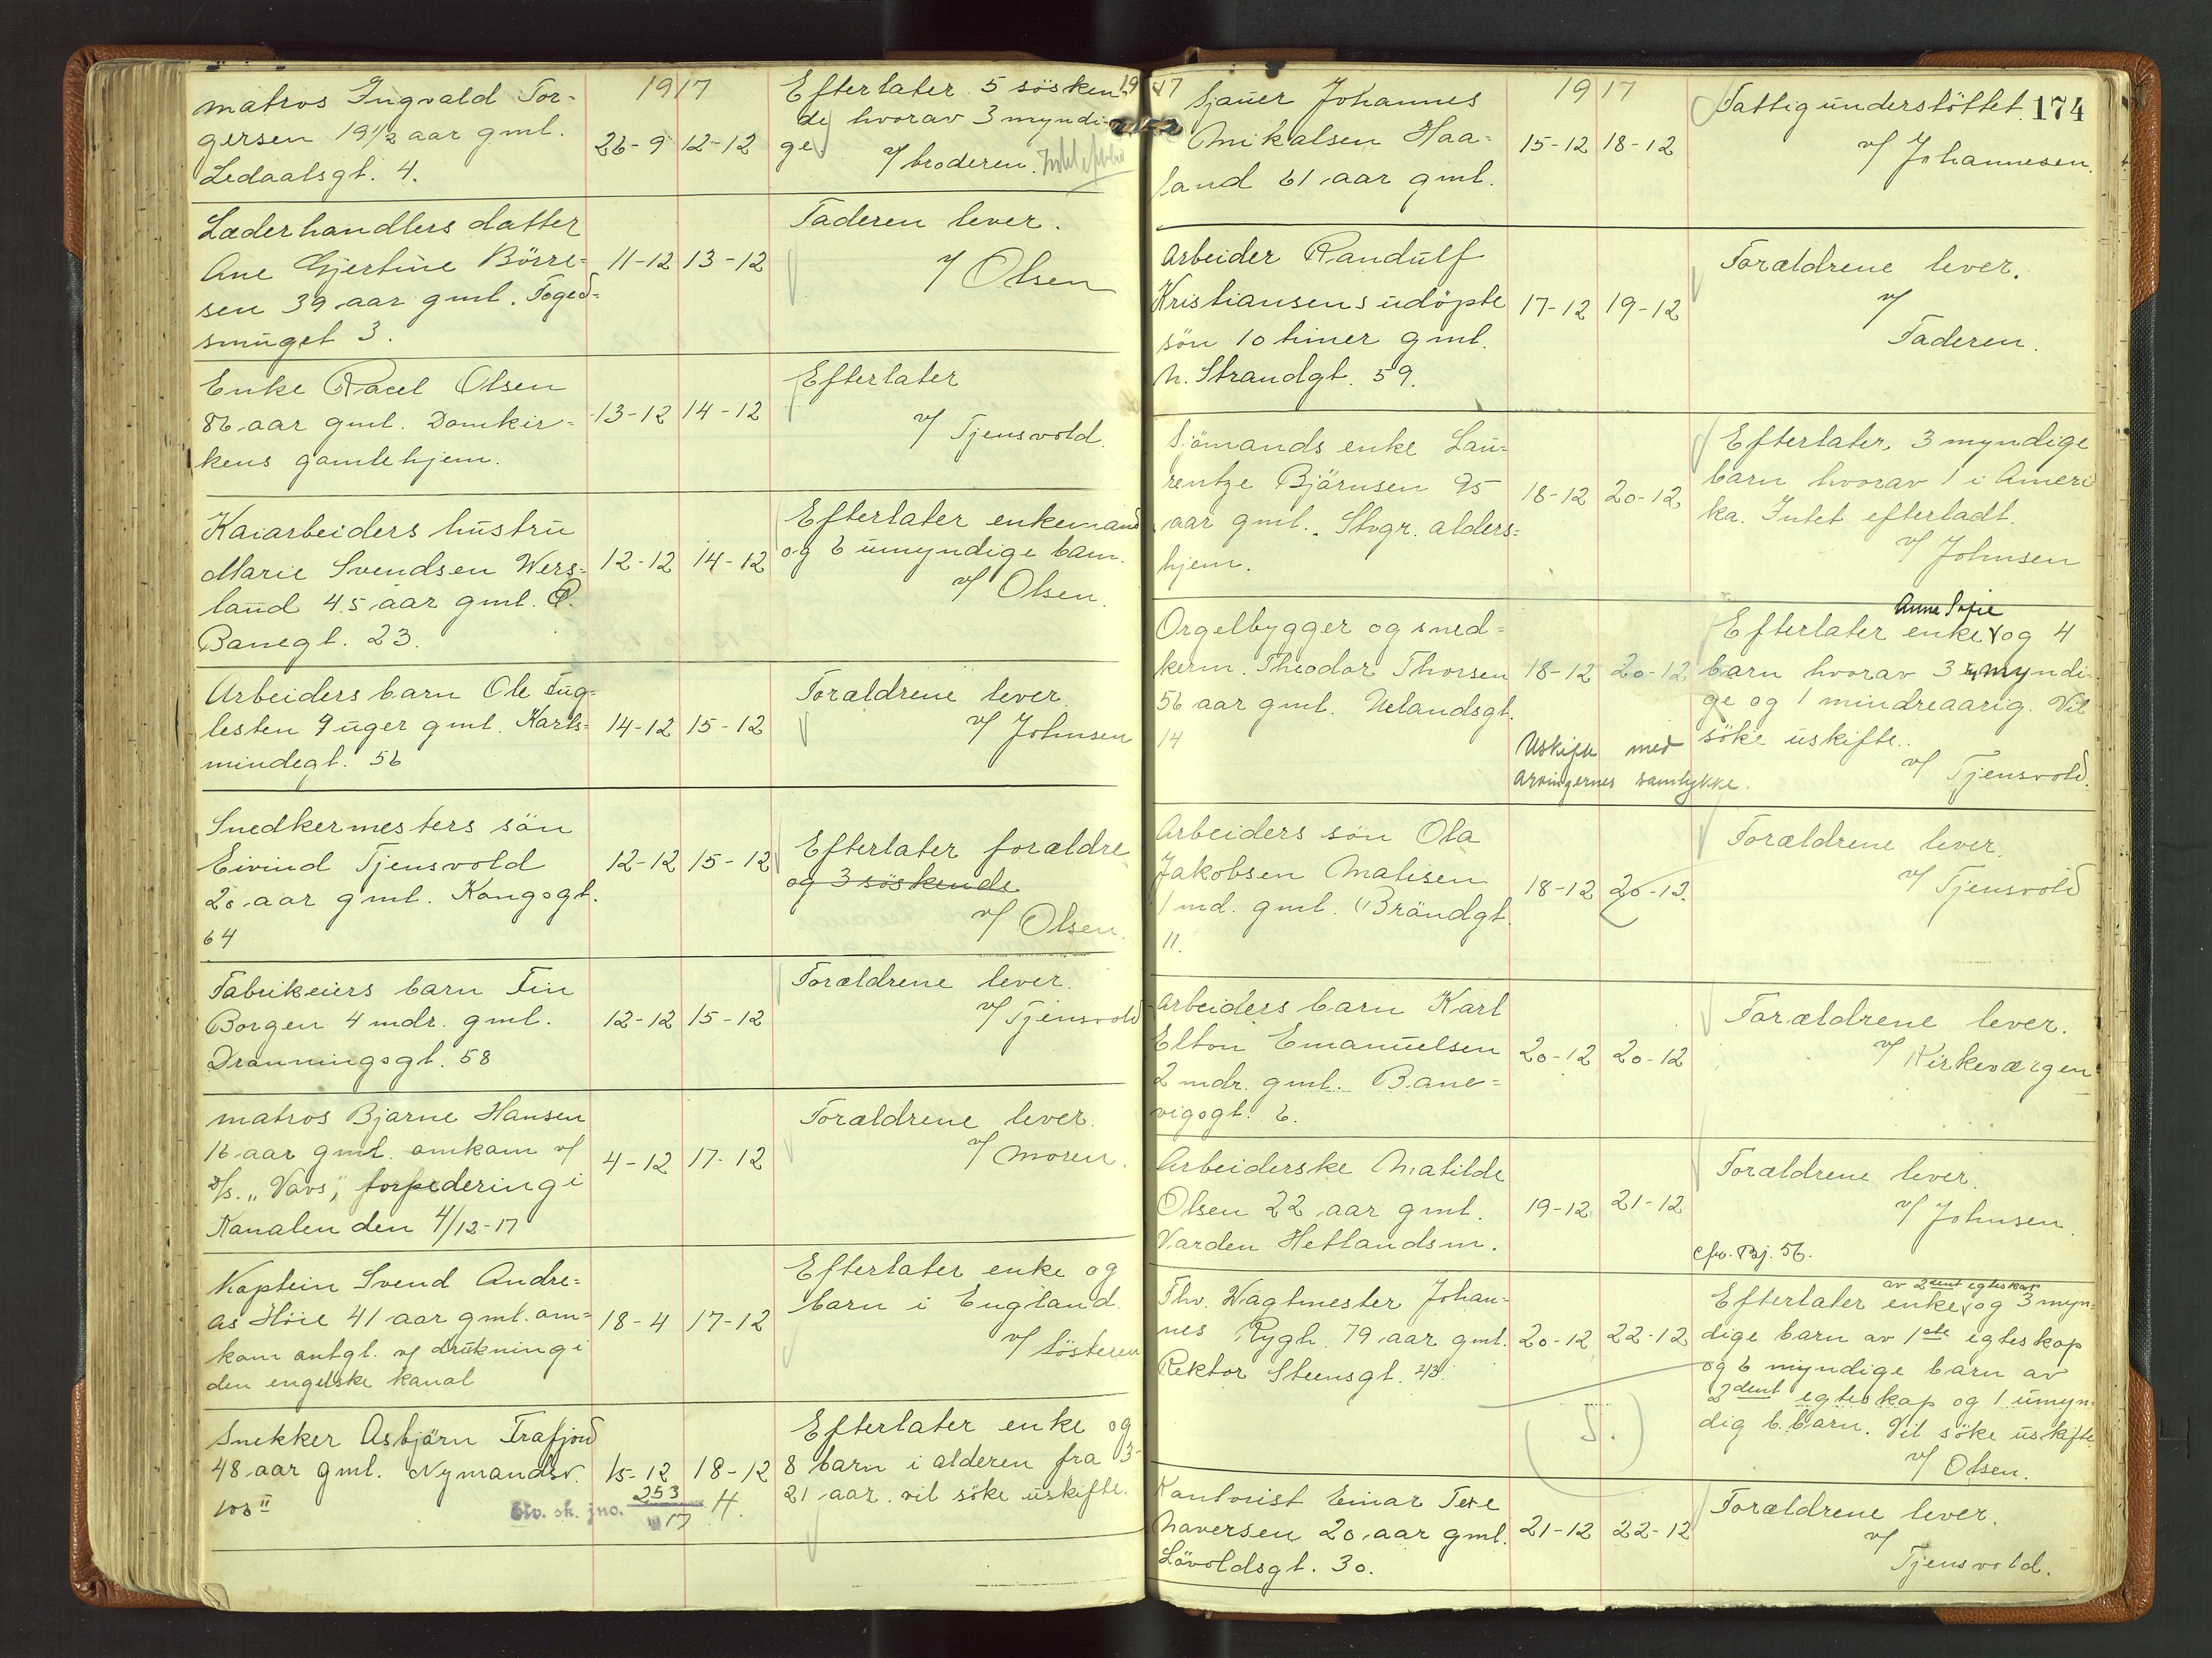 1917
matros Ingvald Tor-
gersen 19 1/2 aar gml.
Ledaalsgt. 4.
26-9 12-12
Efterlater 5 sösken-
de hvorav 3 myndi-
ge.
v/ broderen.
Læderhandlers datter
Ane Gjertine Börre-
sen 39 aar gml. Foged-
smuget 3.
11-12 13-12
Faderen lever.
v/ Olsen
Enke Racel Olsen
86 aar gml. Domkir-
kens gamlehjem.
13-12 14-12
Efterlater
v/ Tjensvold.
Kaiarbeiders hustru
Marie Svendsen Wers-
land 45 aar gml. Ø.
Banegt. 23.
12-12 14-12
Efterlater enkemand
og 6 umyndige barn.
v/ Olsen.
Arbeiders barn Ole Fug-
lesten 9 uger gml. Karls-
mindegt. 56
14-12 15-12
Forældrene lever.
v/ Johnsen
Snedkermesters sön
Eivind Tjensvold
20 aar gml. Kongsgt.
64
12-12 15-12
Efterlater forældre
og 3 söskende
v/ Olsen.
Fabrikeiers barn Fin
Borgen 4 mdr. gml.
Dronningsgt. 58
12-12 15-12
Forældrene lever.
v/ Tjensvold
matros Bjarne Hansen
16 aar gml. omkom v/
D/s. "Vavs", torpedering i
Kanalen den 4/12-17
4-12 17-12
Forældrene lever.
v/ moren.
Kaptein Svend Andre-
as Höie 41 aar gml. om-
kom antgl. v/ drukning i
den engelske kanal
18-4 17-12
Efterlater enke og
barn i England.
v/ Sösteren
Snekker Asbjörn Frafjord
48 aar gml. Nymandsv.
103 II
15-12 18-12
Efterlater enke og
8 barn i alderen fra 3-
21 aar. vil söke uskifte.
Stv. sk. jno. 253/17 H.
174
1917
1917
Sjauer Johannes
Mikalsen Haa-
land 61 aar gml.
15-12 18-12
Fattigunderstöttet.
v/ Johannesen.
Arbeider Randulf
Kristiansens udöpte
sön 10 timer gml.
N. Strandgt. 59.
17-12 19-12
Forældrene lever.
v/
Faderen.
Sjömands enke Lau-
rentze Björnsen 95
aar gml. Stvgr. alders-
hjem.
18-12 20-12
Efterlater 3 myndige
barn hvorav 1 i Ameri
ka. Intet efterladt.
v/ Johnsen
Orgelbygger og sned-
kerm. Theodor Thorsen
56 aar gml. Uelandsgt.
14
18-12 20-12
Anne Sofie
Efterlater enke og 4
barn hvorav 3 myndi-
ge og 1 mindreaarig. Vil
söke uskifte.
v/ Tjensvold.
Uskifte med
arvingernes samtykke.
Arbeiders sön Ola
Jakobsen Malisen
1 md. gml. Bröndgt.
11.
18-12 20-12.
Forældrene lever.
v/ Tjensvold
Arbeiders barn Karl
Elton Emanuelsen
2 mdr. gml. Bane-
vigsgt. 6.
20-12 20-12
Forældrene lever.
v/ Kirkeværgen
Arbeiderske Matilde
Olsen 22 aar gml.
Varden Hetlandsm.
19-12 21-12
Forældrene lever.
v/ Johnsen
cfr. Bj. 56.
Fhv. Wagtmester Johan-
nes Rygh. 79 aar gml.
Rektor Steensgt. 43.
20-12 22-12
av 2dent egteskap
Efterlater enke og 3 myn-
dige barn av 1ste egteskap
og 6 myndige barn av
2dent egteskap og 1 umyn-
dig b. barn. Vil söke uskifte
v/ Olsen.
Kontorist Einar Teie
Naversen 20 aar gml.
Lövoldsgt. 30.
21-12 22-12
Forældrene lever.
v/
Tjensvold.